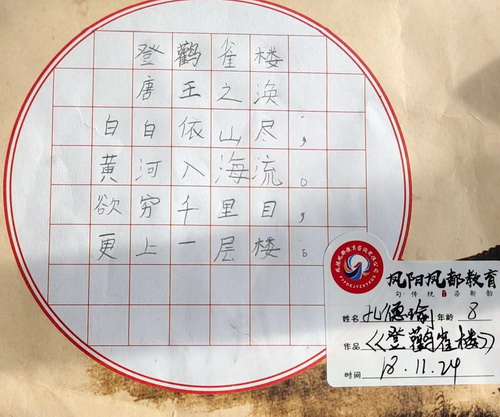 登鹳雀楼
唐王之涣
白自依山尽，
黄河入海流。
欲穷千里目，
更上一层楼。
凤阳凤都教育
姓名 孔德瑜 年龄 8
作品 《登觀雀楼》
时间 18.11.24